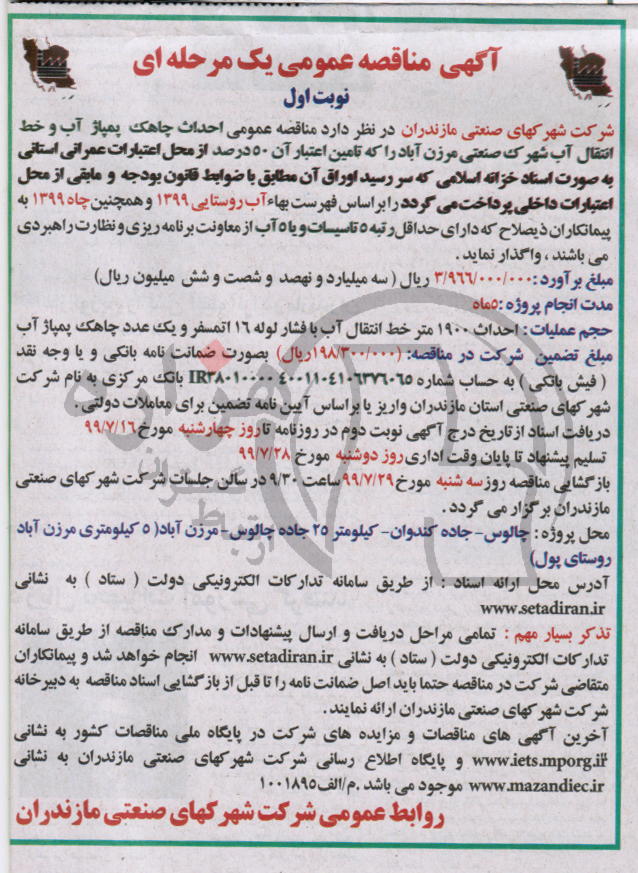 آگهی مناقصه عمومی یک مرحله ای
نوبت اول
شرکت شهرکهای صنعتی مازندران در نظر دارد مناقصه عمومی احداث چاهک پمپاژ آب و خط
انتقال آب شهرک صنعتی مرزن آباد را که تامین اعتبار آن ۵۰ درصد از محل اعتبارات عمرانی استانی
به صورت اسناد خزانه اسلامی که سر رسید اوراق آن مطابق با ضوابط قانون بودجه و مابقی از محل
اعتبارات داخلی پرداخت می گردد را بر اساس فهرست بهاء آب روستایی ۱۳۹۹ و همچنین چاه ۱۳۹۹ به
پیمانکاران ذیصلاح که دارای حداقل رتبه ۵ تاسیسات و یا ۵ آب از معاونت برنامه ریزی و نظارت راهبردی
می باشند ، واگذار نماید .
مبلغ برآورد : ۳/۹۶۶/۰۰۰/۰۰۰ ریال ( سه میلیارد و نهصد و شصت و شش میلیون ریال)
مدت انجام پروژه : ۵ماه
حجم عملیات : احداث ۱۹۰۰ متر خط انتقال آب با فشار لوله ۱۶ اتمسفر و یک عدد چاهک پمپاژ آب
مبلغ تضمین شرکت در مناقصه: (۱۹۸/۳۰۰/۰۰۰ریال) بصورت ضمانت نامه بانکی و یا وجه نقد
( فیش بانکی ) به حساب شماره IR۲۸۰۱۰۰۰۰ ۴۰۰۱۱۰۴۱۰۶۳۷۶۰۶۵ بانک مرکزی به نام شرکت
شهرکهای صنعتی استان مازندران واریز یا بر اساس آیین نامه تضمین برای معاملات دولتی .
دریافت اسناد از تاریخ درج آگهی نوبت دوم در روزنامه تا روز چهارشنبه مورخ ۹۹/۷/۱۶
تسلیم پیشنهاد تا پایان وقت اداری روز دوشنبه مورخ ۹۹/۷/۲۸
بازگشایی مناقصه روز سه شنبه مورخ ۹۹/۷/۲۹ ساعت ۹/۳۰ در سالن جلسات شرکت شهرکهای صنعتی
مازندران برگزار می گردد .
محل پروژه : چالوس- جاده کندوان- کیلومتر ۲۵ جاده چالوس- مرزن آباد( ۵ کیلومتری مرزن آباد
روستای پول)
آدرس محل ارائه اسناد : از طریق سامانه تدارکات الکترونیکی دولت ( ستاد ) به نشانی
www.setadiran.ir
تذکر بسیار مهم : تمامی مراحل دریافت و ارسال پیشنهادات و مدارک مناقصه از طریق سامانه
تدارکات الکترونیکی دولت ( ستاد ) به نشانی www.setadiran.ir انجام خواهد شد و پیمانکاران
متقاضی شرکت در مناقصه حتما باید اصل ضمانت نامه را تا قبل از بازگشایی اسناد مناقصه به دبیرخانه
شرکت شهرکهای صنعتی مازندران ارائه نمایند .
آخرین آگهی های مناقصات و مزایده های شرکت در پایگاه ملی مناقصات کشور به نشانی
www.iets.mporg.ir و پایگاه اطلاع رسانی شرکت شهرکهای صنعتی مازندران به نشانی
www.mazandiec.ir موجود می باشد .م/الف۱۰۰۱۸۹۵
روابط عمومی شرکت شهرکهای صنعتی مازندران